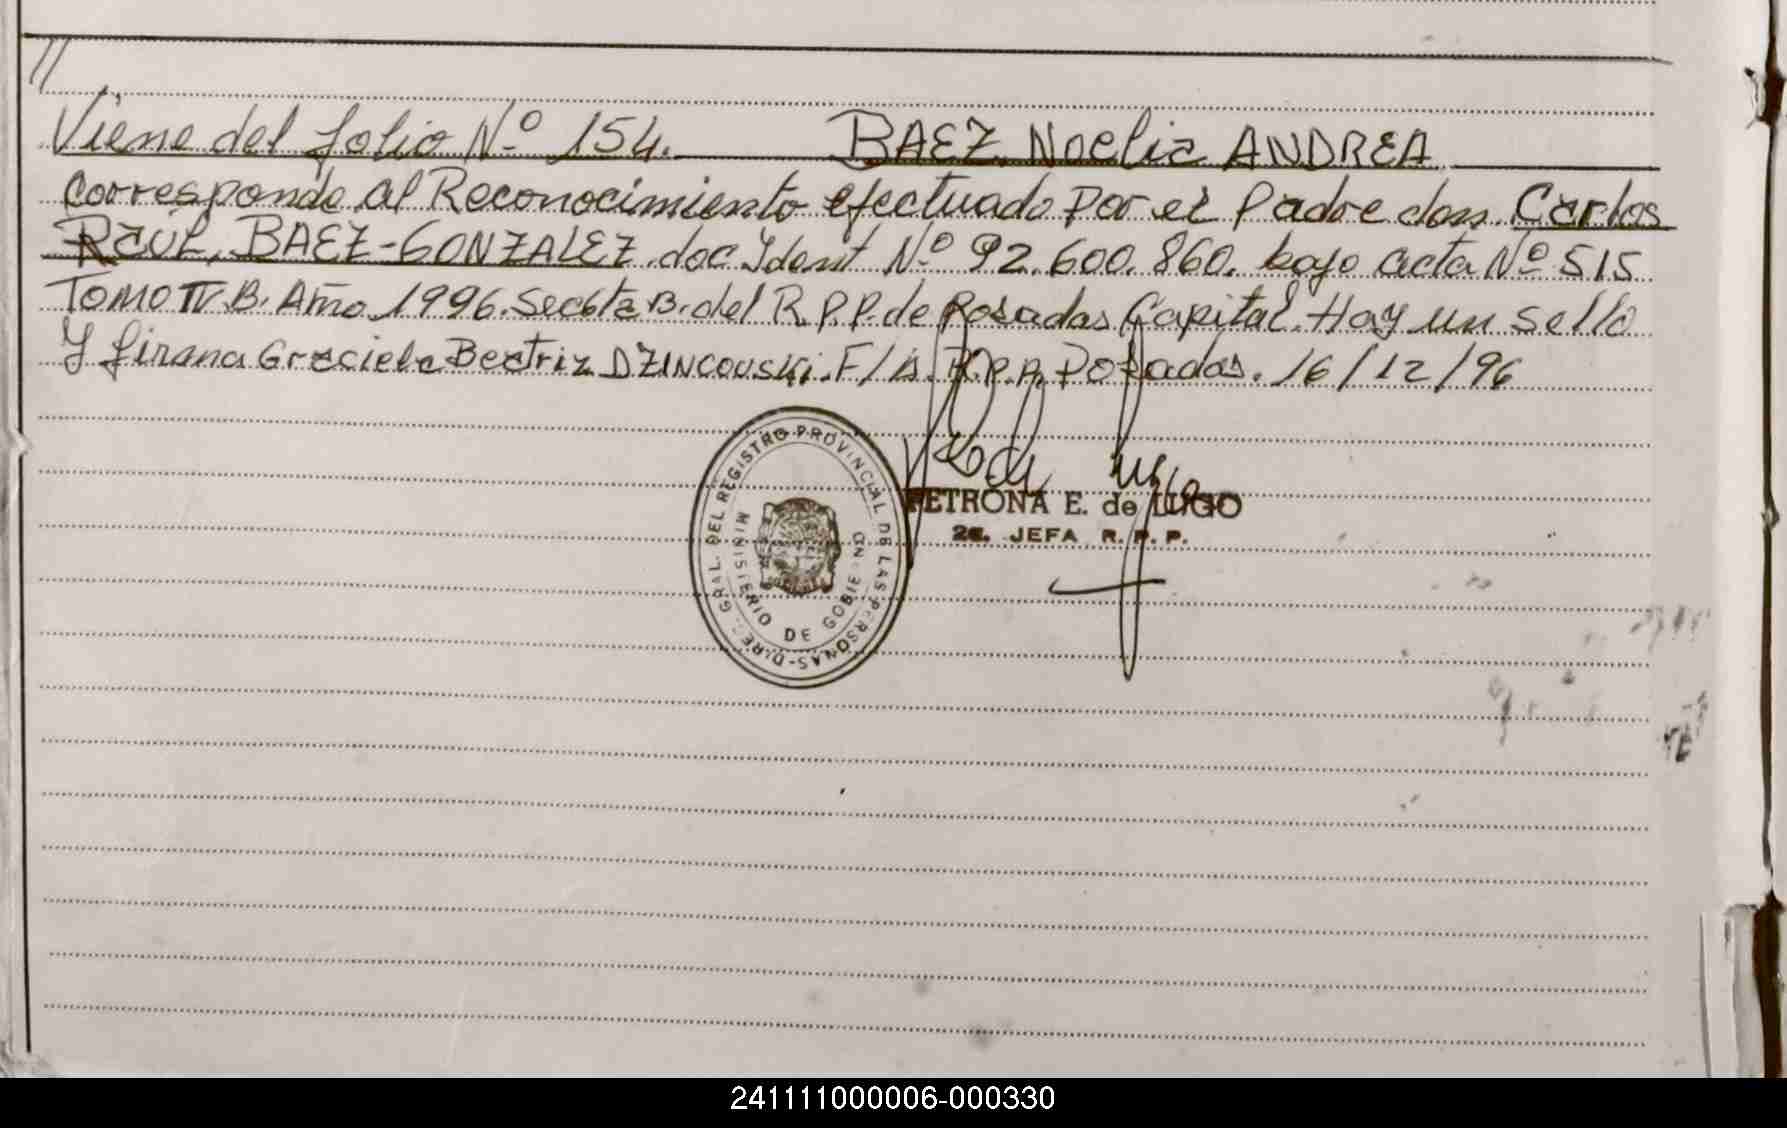 //
Viene del folio Nº 154. BAEZ, Noelia ANDREA
Corresponde al Reconocimiento efectuado por el Padre don Carlos
RAUL, BAEZ-GONZALEZ doc Ident Nº 92.600.860. bajo acta Nº 515
TOMO IV B. Año 1996. Secc 6ta B. del R.P.P. de Posadas Capital. Hay un sello
Y firma Graciela Beatriz DZINCOUSKi. F/A. R.P.P. Posadas. 16/12/96
DIREC. GRAL. DEL REGISTRO PROVINCIAL DE LAS PERSONAS
MINISTERIO DE GOBIERNO
PETRONA E. de LUGO
2a. JEFA R. P. P.
241111000006-000330